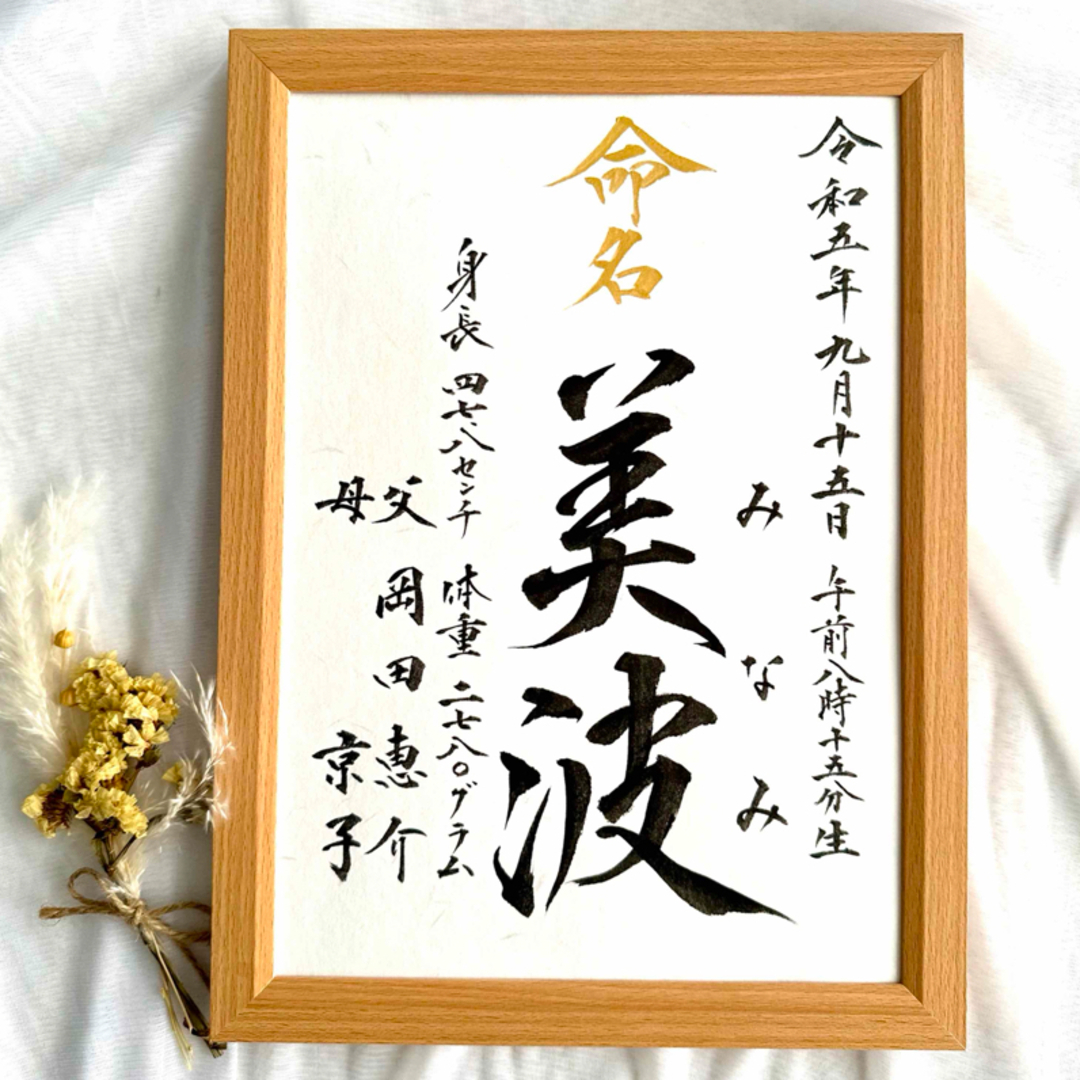 令和五年九月十五日 午前八時十五分生
みなみ
命名 美波
身長 四七.八センチ 体重 二七八〇グラム
父 岡田恵介
母 京子